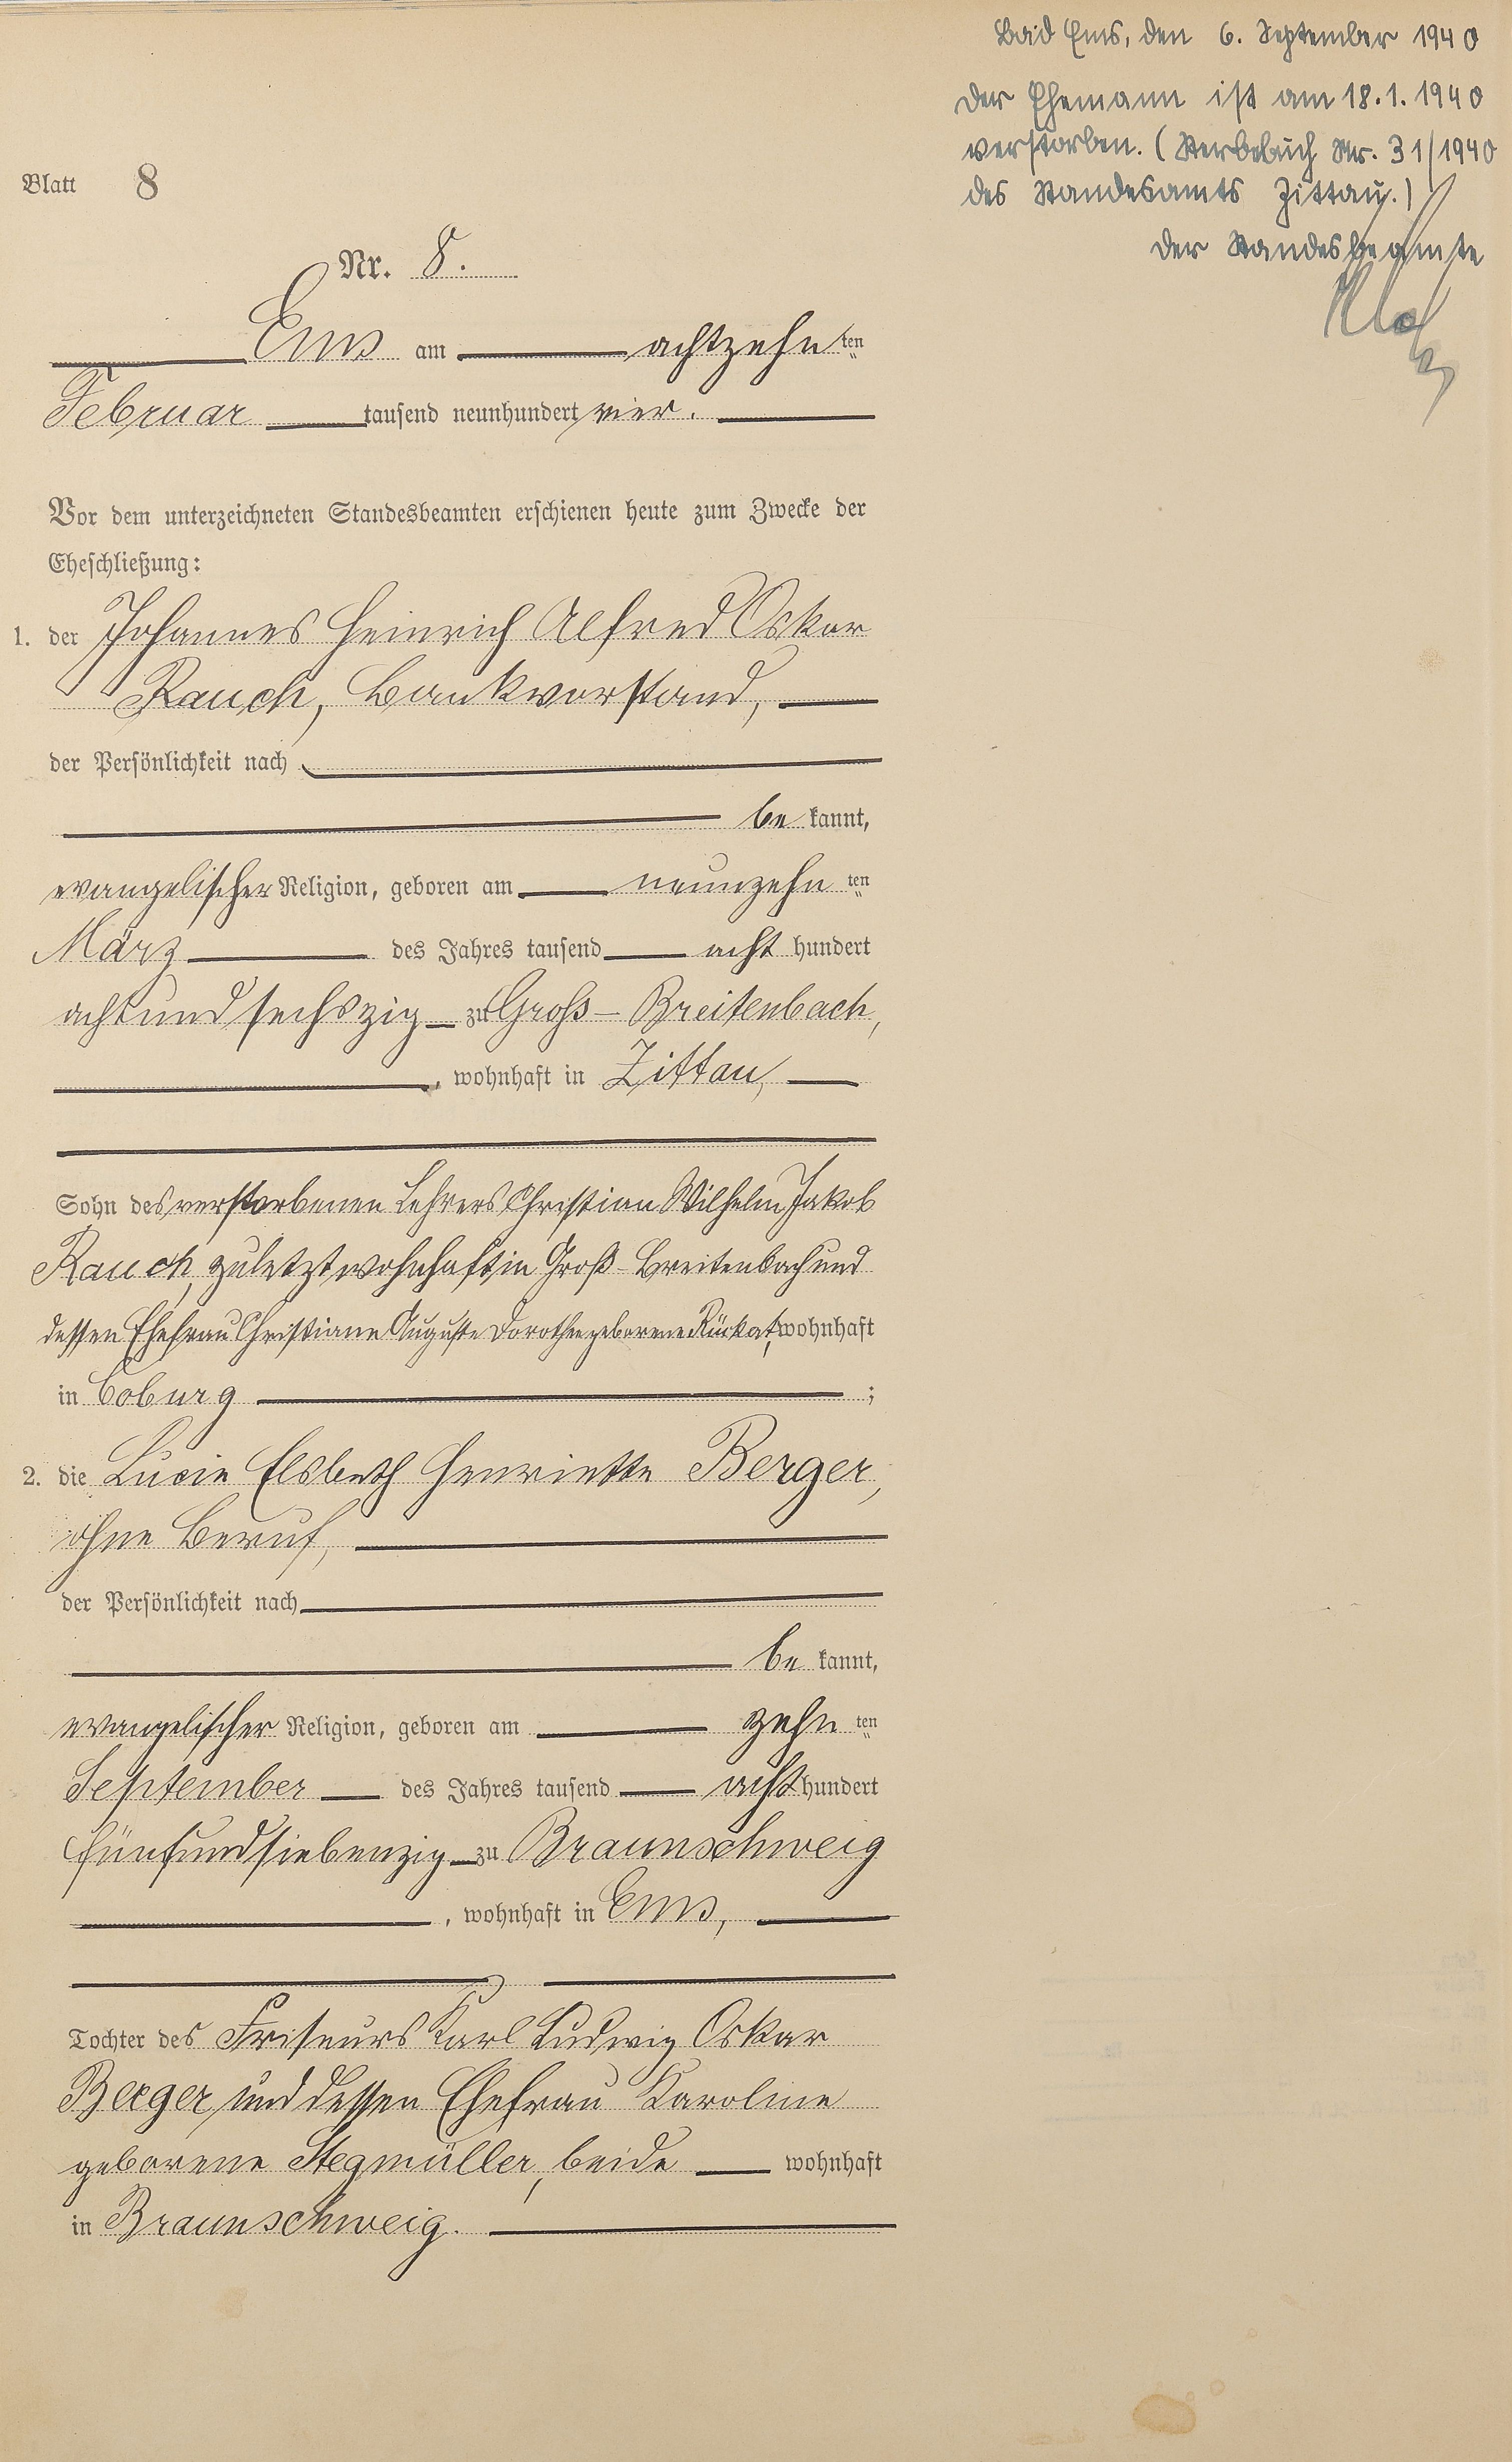 Bad Ems, den 6. September 1940
Der Ehemann ist am 18.1.1940
verstorben. (Sterbebuch Nr. 31/1940
des Standesamts Zittau.)
Der Standesbeamte
Blatt 8
Nr. 8.
Ems am achtzehnten
Februar tausend neunhundert vier.
Vor dem unterzeichneten Standesbeamten erschienen heute zum Zwecke der
Eheschließung:
1. der Johannes Heinrich Alfred Oskar
Rauch, Bankvorstand,
der Persönlichkeit nach
be kannt,
evangelischer Religion, geboren am neunzehnten
März des Jahres tausend acht hundert
achtundsechszig zu Gross-Breitenbach,
, wohnhaft in Zittau,
Sohn des verstorbenen Lehrers Christian Wilhelm Jakob
Rauch, zuletzt wohnhaft in Groß-Breitenbach und
dessen Ehefrau Christiane Auguste Dorothee geborene wohnhaft
in Coburg ;
2. die Lucie Elsbeth Henriette Berger,
ohne Beruf,
der Persönlichkeit nach
be kannt,
evangelischer Religion, geboren am zehnten
September des Jahres tausend acht hundert
fünfundsiebenzig zu Braunschweig
, wohnhaft in Ems,
Tochter des Friseurs Karl Ludwig Oskar
Berger und dessen Ehefrau Karoline
geborene Stegmüller, beide wohnhaft
in Braunschweig.